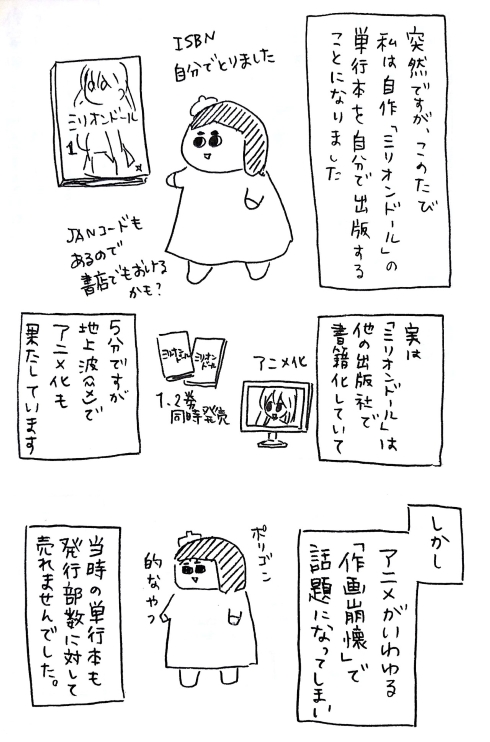 突然ですが、このたび
私は自作「ミリオンドール」の
単行本を自分で出版する
ことになりました
ISBN
自分でとりました
ミリオンドール
1
JANコードも
あるので
書店でもおける
かも?
実は
「ミリオンドール」は
他の出版社で
書籍化していて
アニメ化
ミリオンドール
ミリオンドール
1、2巻
同時発売
5分ですが
地上波で
アニメ化も
果たしています
しかし
アニメがいわゆる
「作画崩壊」で
話題になってしまい
ポリゴン
的なやつ
当時の単行本も
発行部数に対して
売れませんでした。